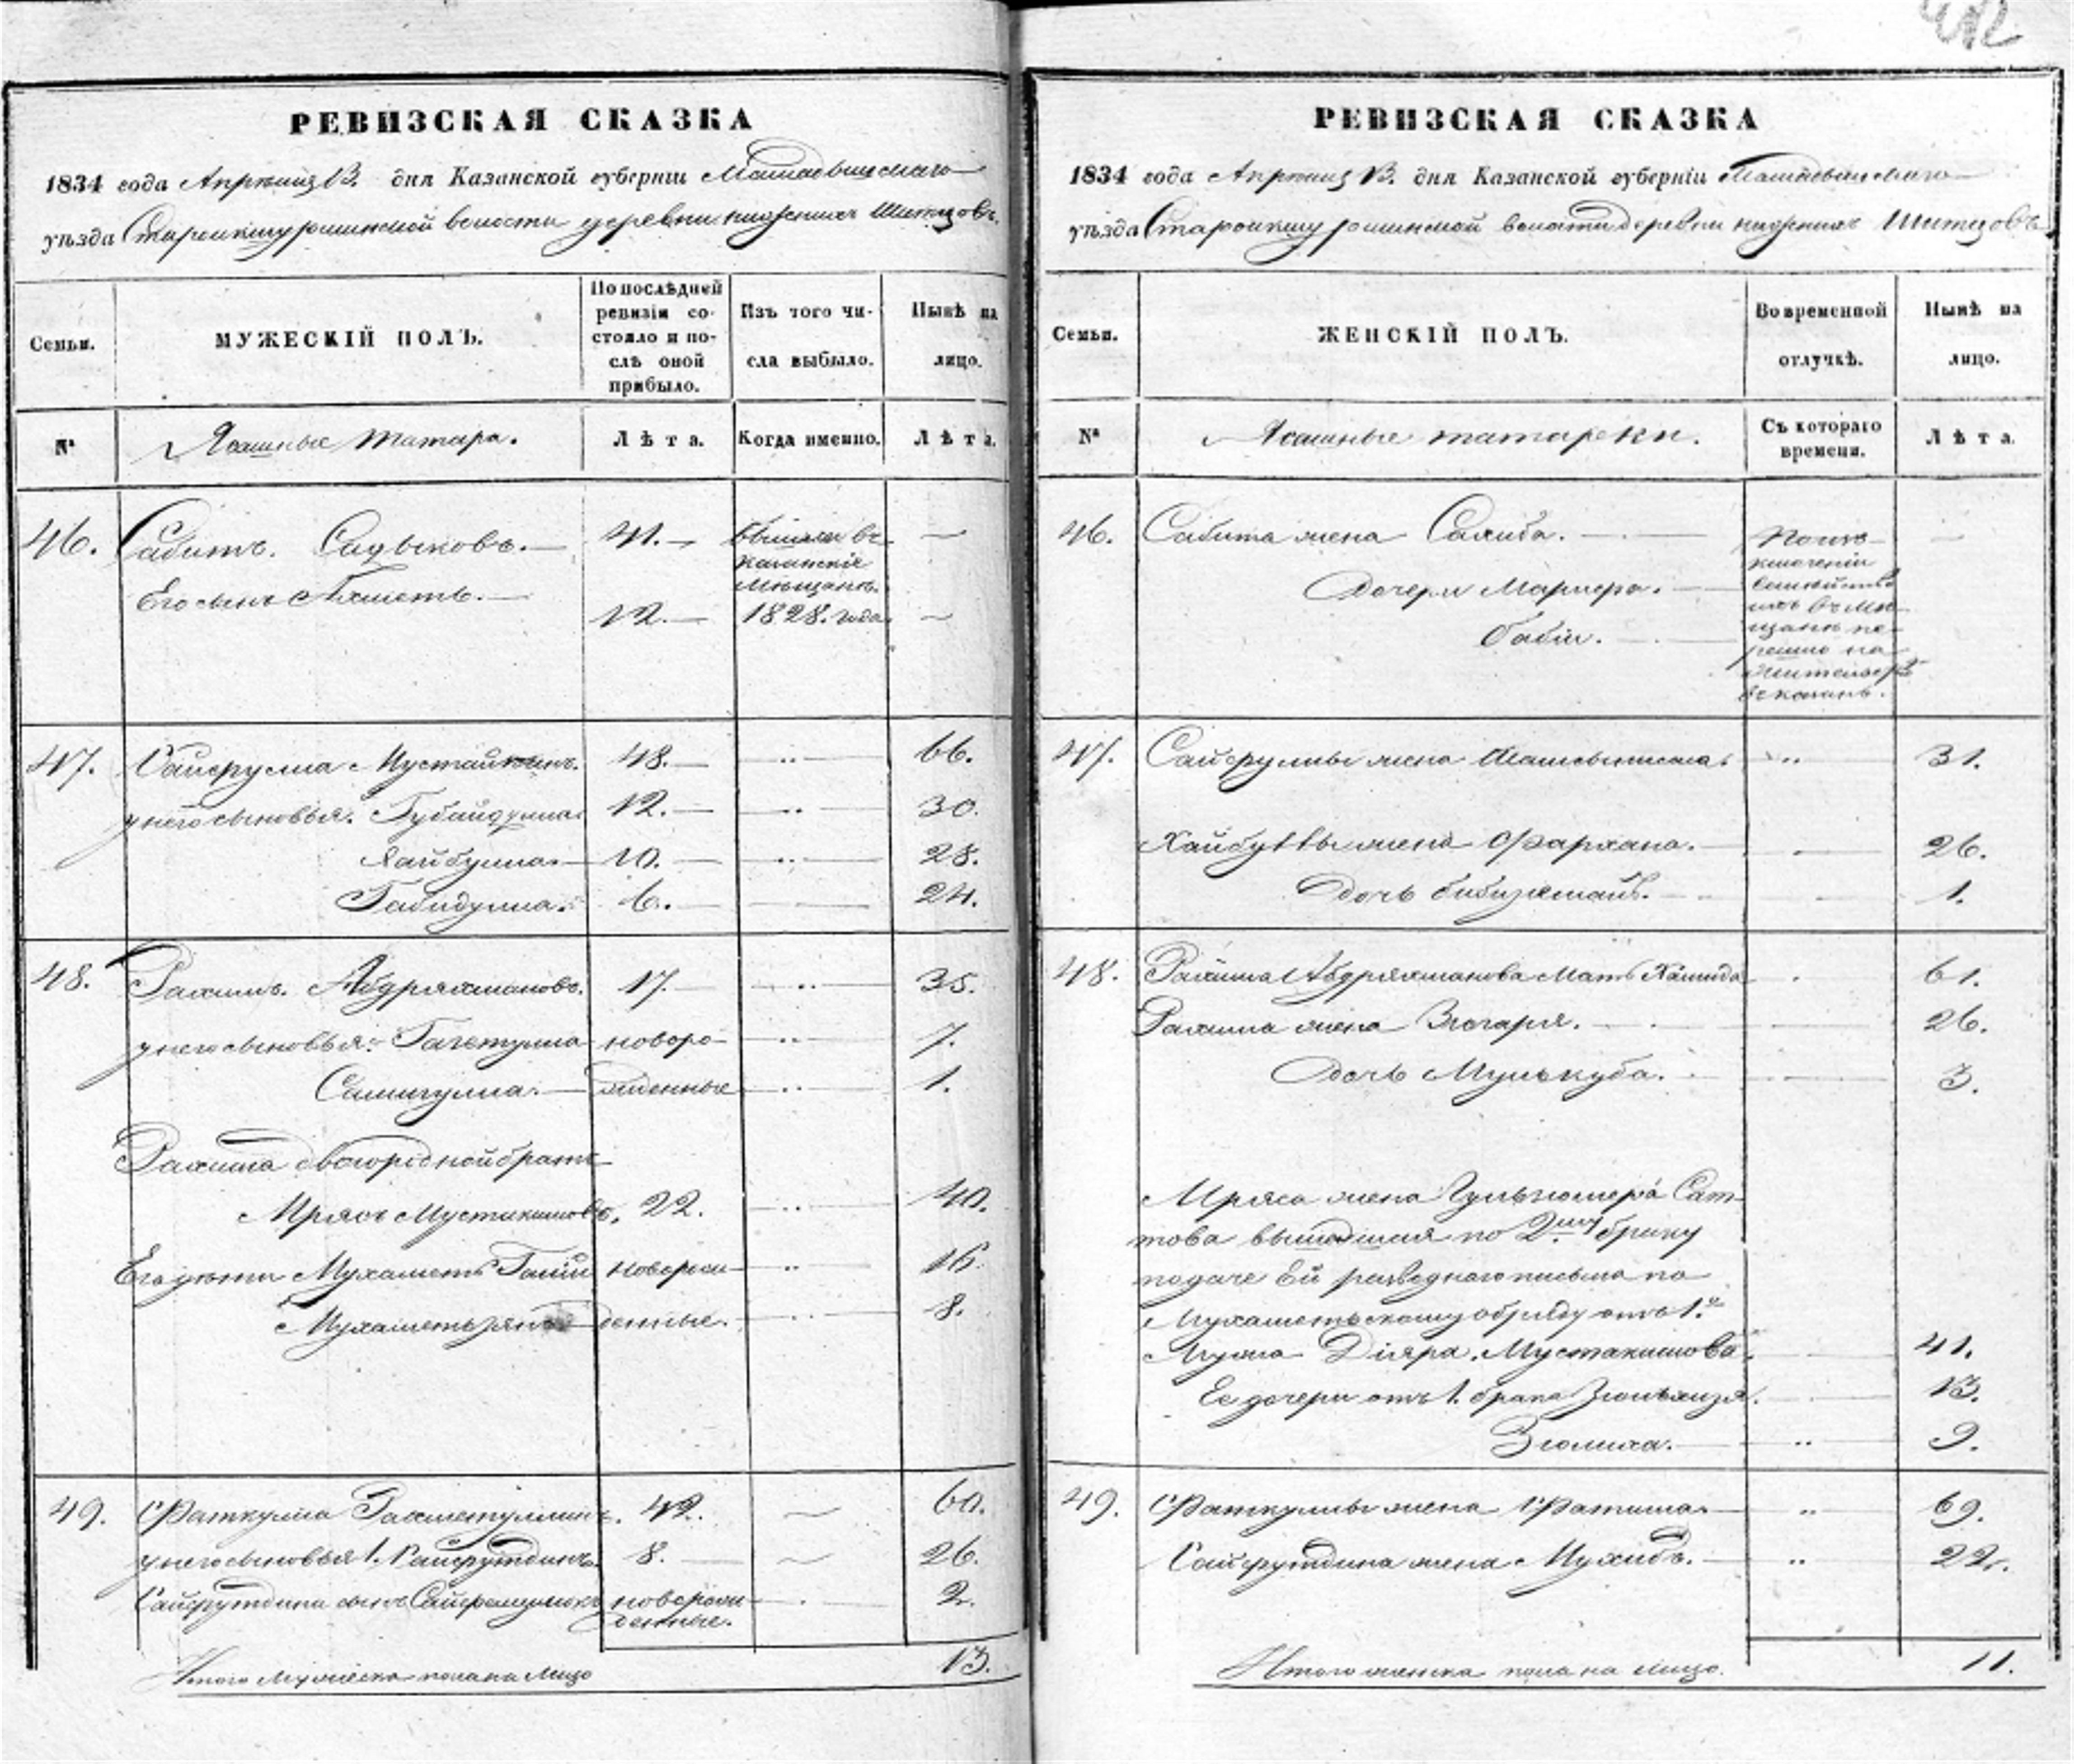 412
РЕВИЗСКАЯ СКАЗКА
1834 года Апрѣля 13. дня Казанской губерніи Мамадышскаго
уѣзда Старокишурминской волости деревни нижнихъ Шитцовъ.
Семьи.
МУЖЕСКІЙ ПОЛЪ.
По послѣдней ревизіи состояло и послѣ оной прибыло.
Изъ того числа выбыло.
Нынѣ на лицо.
№
Ясашные татара.
Лѣта.
Когда именно.
Лѣта.
46. Сабитъ Садыковъ. 41. вышли въ
казанскіе
мѣщане.
Его сынъ Ахметь. 12. 1828. года
47. Сайфулла 48. 66.
у него сыновья. Губайдулла 12. 30.
Хайбулла 10. 28.
Габидулла. 6. 24.
48. Рахимъ Абдряхмановъ. 17. 35.
у него сыновья: новоро- 7.
Самигулла. жденные 1.
Рахима двоюродной братъ
Мрясь Мустакимовъ. 22. 40.
Его дѣти Мухаметь новорож- 16.
Мухаметьзянъ денные. 8.
49. Фаткулла Рахметуллинъ. 42. 60.
у него сыновья 1. Сайфутдинъ. 8. 26.
Сайфутдина сынъ новорож- 2.
денные.
Итого мужеска пола на лицо 13.
РЕВИЗСКАЯ СКАЗКА
1834 года Апрѣля 13. дня Казанской губерніи Мамадышскаго
уѣзда Старокишурминской волости деревни нижнихъ Шитцовъ
Семьи.
ЖЕНСКІЙ ПОЛЪ.
Во временной отлучкѣ.
Нынѣ на лицо.
№
Ясашные татарки.
Съ котораго времени.
Лѣта.
46. Сабита жена Салиба.
Дочери
Бабій.
въ мѣ-
щане пе-
решло на
жительство
въ казань.
47. Сайфуллы жена 31.
Хайбуллы жена Фархана. 26.
Дочь Бибизямалъ. 1.
48. Рахима Абдряхманова мать Хамида 61.
Рахима жена Зюгаря. 26.
Дочь Мулькуба. 3.
Мряса жена Сат-
това вышедшая по 2му браку
подаче ей разводнаго письма по
Мухаметьскому обряду отъ 1.го
мужа Діяра. Мустакимова. 41.
Ее дочери отъ 1. брака 13.
Зюлиха. 9.
49. Фаткуллы жена Фатима. 69.
Сайфутдина жена 22.
Итого женска пола на лицо. 11.